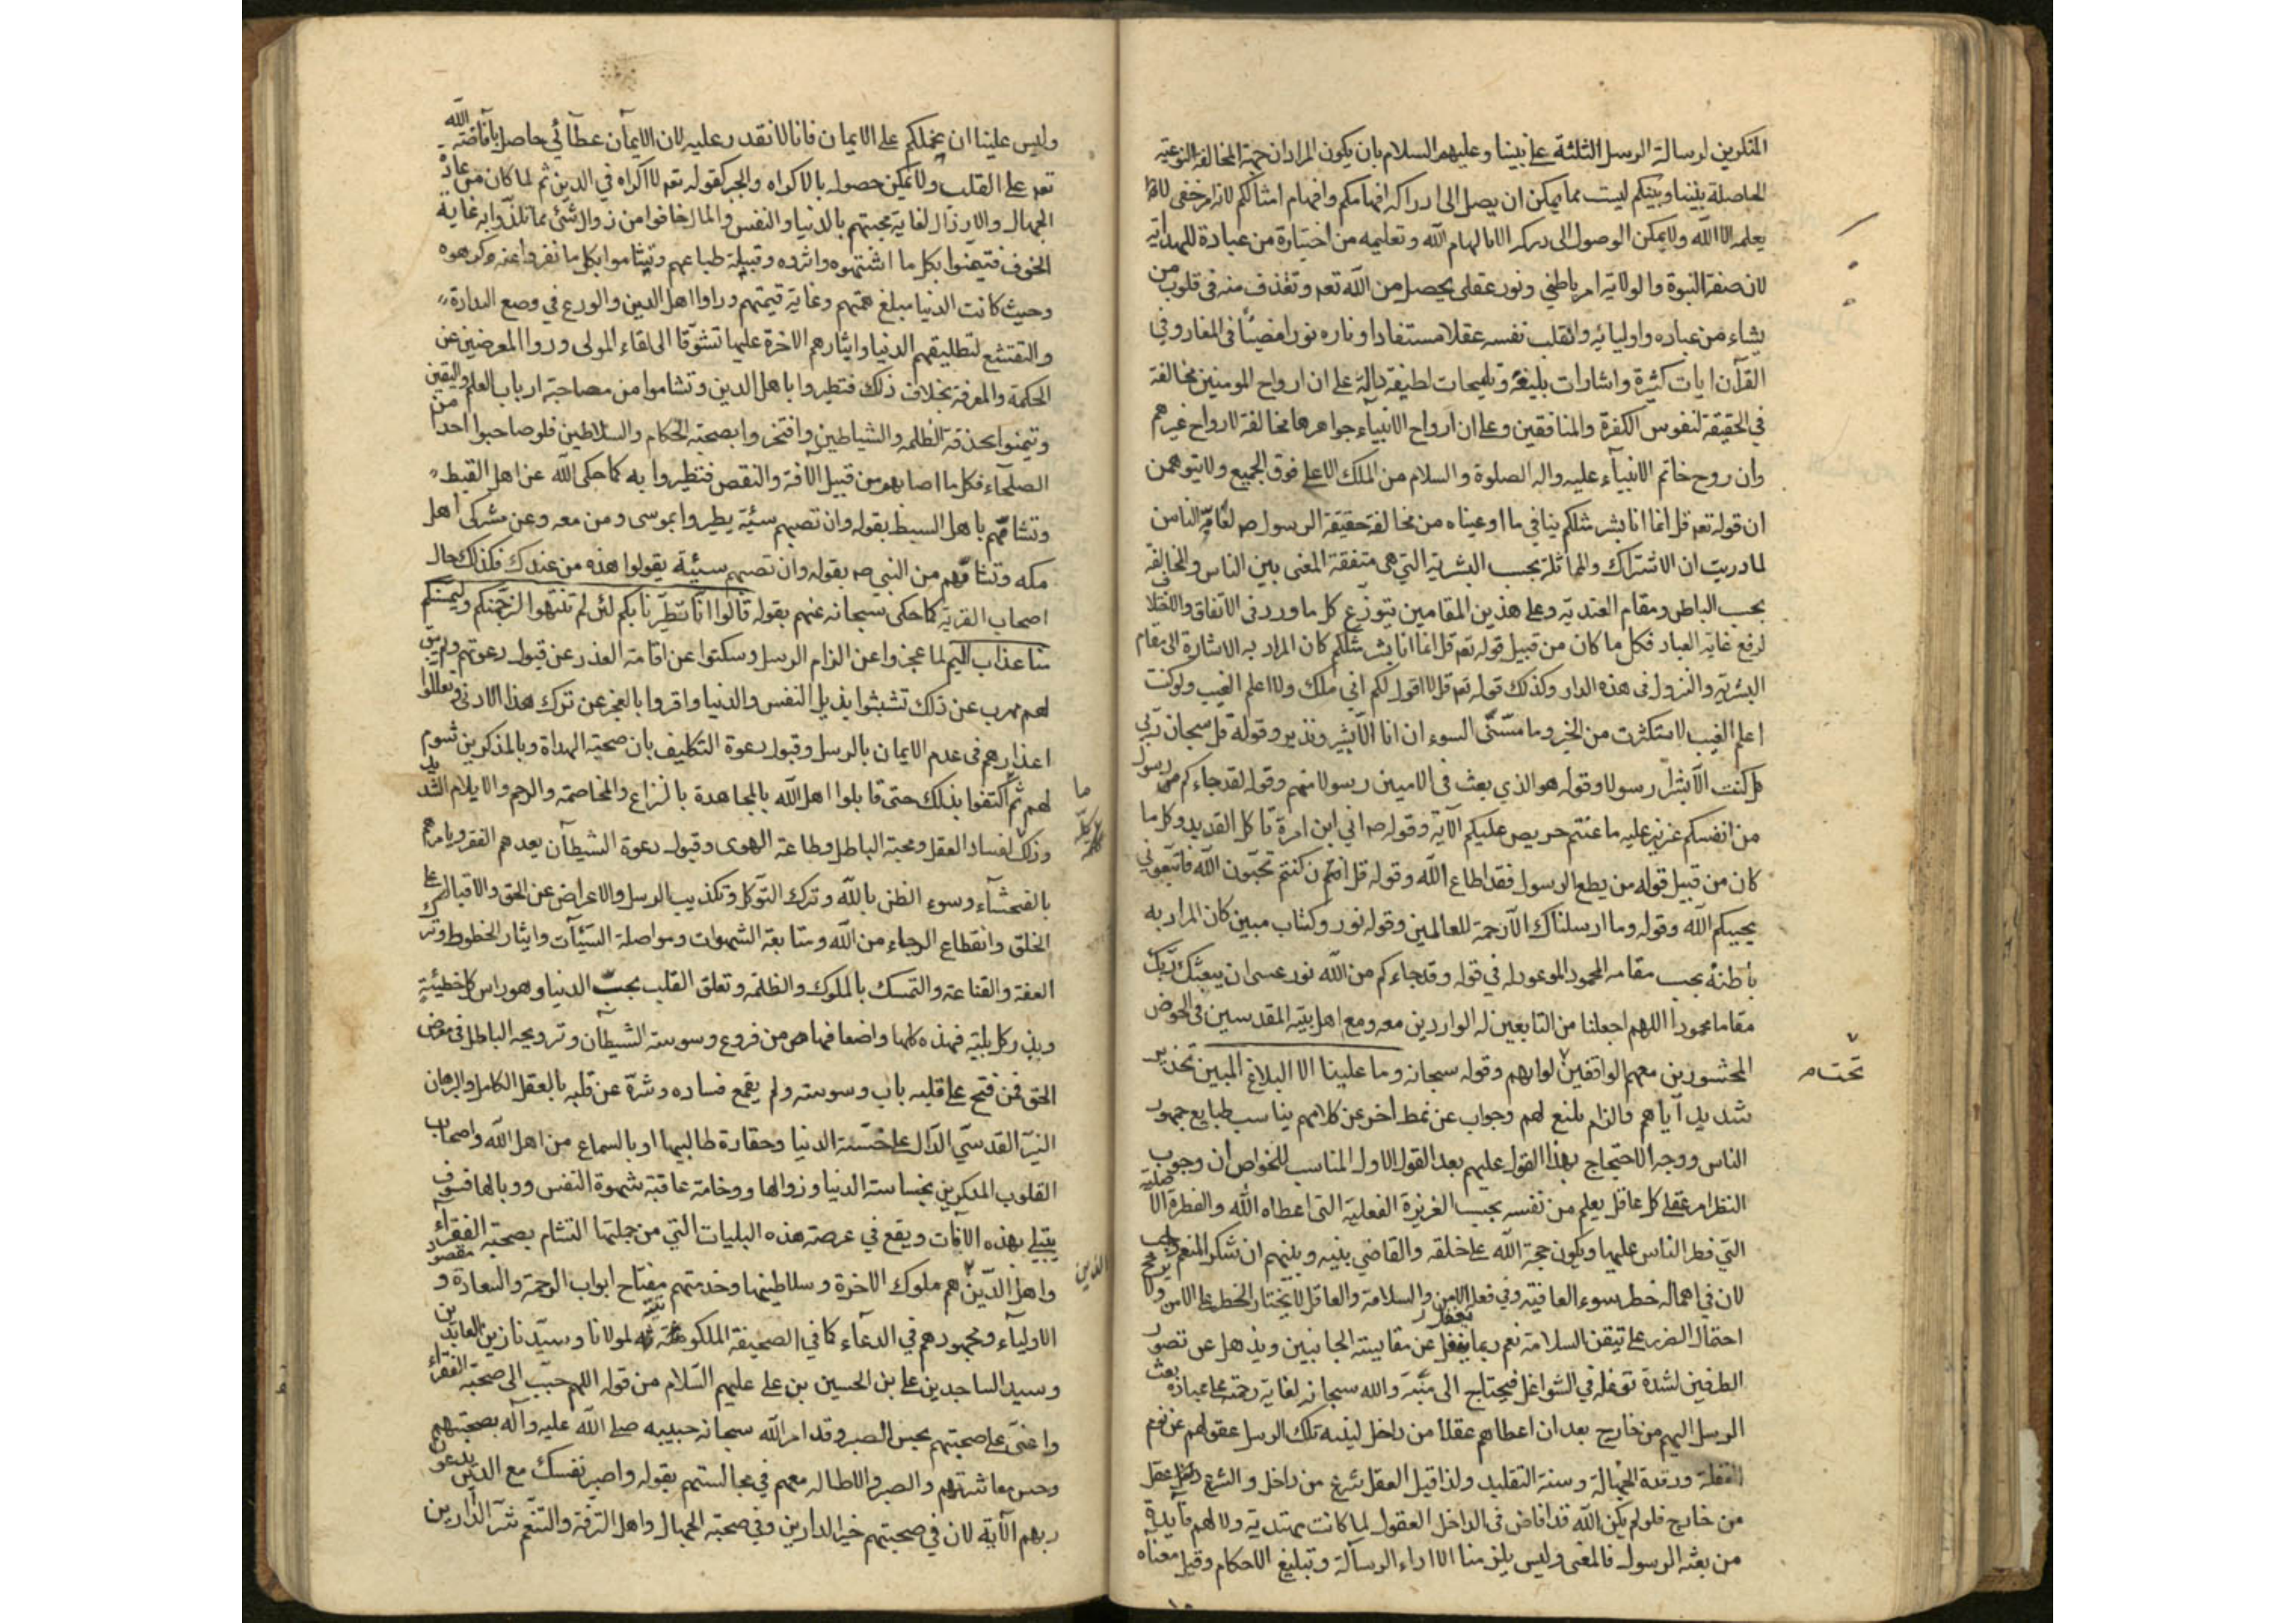 المنكرين لرسالة الرسل الثلثة على نبينا وعليهم السلام بان يكون المراد ان جهة المخالفة النوعية
الحاصلة بيننا وبينكم ليست مما يمكن ان يصل الى ادراكه افهامكم وافهام امثالكم لانه امر خفى لا
يعلمه الا الله ولا يمكن الوصول الى دركه الا بالهام الله وتعليمه من اختياره من عباده للهداية
لان صفة النبوة والولاية امر باطنى ونور عقلى يحصل من الله تعه وتقذف منه فى قلوب من
يشاء من عباده واوليائه وانقلب نفسه عقلا مستفادا وناره نورا مضيئا فى المعاد وفى
القرآن ايات كثيرة واشارات بليغة وتلميحات لطيفة دالة على ان ارواح المومنين مخالفة
في الحقيقة لنفوس الكفرة والمنافقين وعلى ان ارواح الانبياء جواهرها مخالفة لارواح غيرهم
وان روح خاتم الانبياء عليه واله الصلوة والسلام من الملك الاعلى فوق الجميع ولا يتوهمن
ان قوله تعه قل انما انا بشر مثلكم ينافي ما اوعيناه من مخالفة حقيقة الرسول صه لعامة الناس
لما دريت ان الاشتراك والمماثلة بحسب البشرية التي هى متفقة المعنى بين الناس والمخالفة
بحسب الباطن ومقام العندية وعلى هذين المقامين يتوزع كل ما ورد فى الاتفاق والاختلاف
لرفع غاية العباد فكل ما كان من قبيل قوله تعه قل انما انا بشر مثلكم كان المراد به الاشارة الى مقام
البشرية والنزول فى هذه الدار وكذلك قوله تعه قل لا اقول لكم انى ملك ولا اعلم الغيب ولو كنت
اعلم الغيب لاستكثرت من الخير وما مسّنى السوء ان انا الّا بشير ونذير وقوله قل سبحان ربى
هل كنت الّا بشرا رسولا وقوله هو الذي بعث فى الاميين رسولا منهم وقوله لقد جاءكم رسول
من انفسكم عزيز عليه ما عنتم حريص عليكم الآية وقوله صه اني ابن امرة تاكل القديد وكل ما
كان من قبيل قوله من يطع الرسول فقد اطاع الله وقوله قل ان كنتم تحبّون الله فاتبعوني
يحببكم الله وقوله وما ارسلناك الّا رحمة للعالمين وقوله نور وكتاب مبين كان المراد به
باطنه بحسب مقامه المحمود الموعود له في قوله وقد جاءكم من الله نور عسى ان يبعثك ربّك
مقاما محمودا اللهم اجعلنا من التابعين له الواردين معه ومع اهل بيته المقدسين فى الحوض
المحشورين معهم الواقفين لوائهم وقوله سبحانه وما علينا الا البلاغ المبين تحذير
تحت
شديد اياهم والزام بلنع لهم وجواب عن نمط آخر عن كلامهم يناسب طبايع جمهور
الناس ووجه الاحتجاج بهذا القول عليهم بعد القول الاول المناسب للخواص ان وجوب
النظر امر عقلى كل عاقل يعلم من نفسه بحسب الغريزة الفعلية التى اعطاه الله والفطرة الاصلية
التي فطر الناس عليها ويكون حجة الله على خلقه والقاضي بينه وبينهم ان شكر المنعم واجب
لان في اهماله خطر سوء العافية وفي فعله الامن والسلامة والعاقل لا يختار الخطر على الامن ولا
احتمال الضرر على تيقن السلامة نعم ربما يغفل عن مقايسة الجانبين ويذهل عن تصور
الطرفين لشدة توغله في الشواغل فيحتاج الى منبّه والله سبحانه لغاية رحمته على عباده بعث
الرسل اليهم من خارج بعد ان اعطاهم عقلا من داخل لينبه تلك الرسل عقولهم عن نوم
الغفلة ورقدة الجهالة وسنة التقليد ولذا قيل العقل شرع من داخل والشرع عقل
من خارج فلو لم يكن الله قد افاض فى الداخل العقول لما كانت مهتدية ولا لهم فايدة
من بعثة الرسول فالمعنى وليس يلزمنا الا اداء الرسالة وتبليغ الاحكام وقيل معناه
وليس علينا ان نحملكم على الايمان فانا لا نقدر عليه لان الايمان عطائي حاصل بافاضة الله
تعه على القلب ولا يمكن حصوله بالاكراه والجبر كقوله تعه لا اكراه في الدين ثم لما كان من عادة
الجهال والارذال لغاية محبتهم بالدنيا والنفس والمال خافوا من زوال شئ مما تلذّوا به غاية
الخوف فتيمّنوا بكل ما اشتهوه واثروه وقبلته طباعهم وتشاموا بكل ما نفروا عنه وكرهوه
وحيث كانت الدنيا مبلغ همتهم وغاية قيمتهم وراوا اهل الدين والورع في وضع
والتقشع لتطليقهم الدنيا وايثارهم الاخرة عليها تشوّقا الى لقاء المولى وروا المعرضين عن
الحكمة والمعرفة بخلاف ذلك فتطيروا باهل الدين وتشاموا من مصاحبة ارباب العلم واليقين
وتيمنوا بخدمة الظلمه والشياطين وافتخروا بصحبة الحكام والسلاطين فلو صاحبوا احدا من
الصلحاء فكل ما اصابهم من قبيل الآفة والنقص فتطيروا به كما حكى الله عن اهل القبط
وتشامّهم باهل السبط بقوله وان تصبهم سيّئة يطيروا بموسى ومن معه وعن مشركى اهل
مكه وتشامهم من النبي صه بقوله وان تصبهم سيئة يقولوا هذه من عندك فكذلك حال
اصحاب القرية كما حكى سبحانه عنهم بقوله قالوا انّا تطيّرنا بكم لئن لم تنتهوا لنرجمنكم وليمسنكم
منا عذاب اليم لما عجزوا عن الزام الرسل وسكتوا عن اقامة العذر عن قبول دعوتهم ولم يبق
لهم مهرب عن ذلك تشبثوا بذيل النفس والدنيا واقروا بالعجز عن ترك هذا الادنى وتعللوا
اعذارهم فى عدم الايمان بالرسل وقبول دعوة التكليف بان صحبة الهداة وبالمذكرين شوم
لهم ثم اكتفوا بذلك حتى قابلوا اهل الله بالمجاهدة بالنزاع والمخاصمة والرجم والايلام الشديد
ما
وذلك لفساد العقل ومحبة الباطل وطاعة الهوى وقبول دعوة الشيطان يعدهم الفقر ويامرهم
بالفحشاء وسوء الظن بالله وترك التوكل وتكذيب الرسل والاعراض عن الحق والاقبال على
الخلق وانقطاع الرجاء من الله ومتابعة الشهوات ومواصلة السيّآت وايثار الحظوظ وترك
العفة والقناعة والتمسك بالملوك والظلمة وتعلق القلب بحبّ الدنيا وهو راس كل خطيئة
وبذر كل بليّة فهذه كلها واضعافها هى من فروع وسوسة الشيطان وترويجه الباطل فى معرض
الحق فمن فتح على قلبه باب وسوسته ولم يقمع فساده وشرّه عن قلبه بالعقل الكامل والبرهان
النيّر القدسّي الدّال على خسّة الدنيا وحقارة طالبيها او بالسماع من اهل الله واصحاب
القلوب المذكرين بخساسة الدنيا وزوالها ووخامة عاقبة شهوة النفس ووبالها فسوف
يبتلى بهذه الآفات ويقع في عرصة هذه البليات التي من جملتها التشام بصحبة الفقراء
واهل الدّين هم ملوك الاخرة وسلاطينها وخدمتهم مفتاح ابواب الرحمة والسعادة و مقصود
الذين
الاولياء ومجهودهم في الدعاء كما في الصحيفة الملكوتية لمولانا وسيّدنا زين العابدين
وسيد الساجدين على بن الحسين بن على عليهم السّلام من قوله اللهم حبّب الى صحبة الفقراء
واعنّى على صحبتهم بحسن الصبر وقد امر الله سبحانه حبيبه صلى الله عليه وآله بصحبتهم
وحسن معاشرتهم والصبر والاطالة معهم في مجالستهم بقوله واصبر نفسك مع الذين يدعون
ربهم الآية لان في صحبتهم خير الدارين وفي صحبة الجهال واهل الترفّه والتنعّم شرّ الدّارين